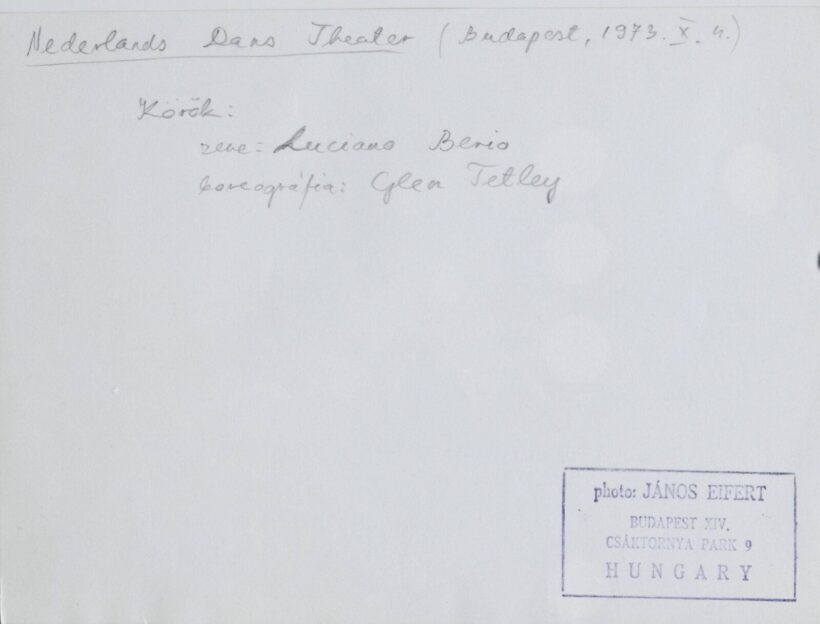 Nederlands Dans Theater (Budapest, 1973. X. 4.)
Körök:
zene: Luciano Berio
koreográfia: Glen Tetley
photo: JÁNOS EIFERT
BUDAPEST XIV.
CSÁKTORNYA PARK 9
HUNGARY